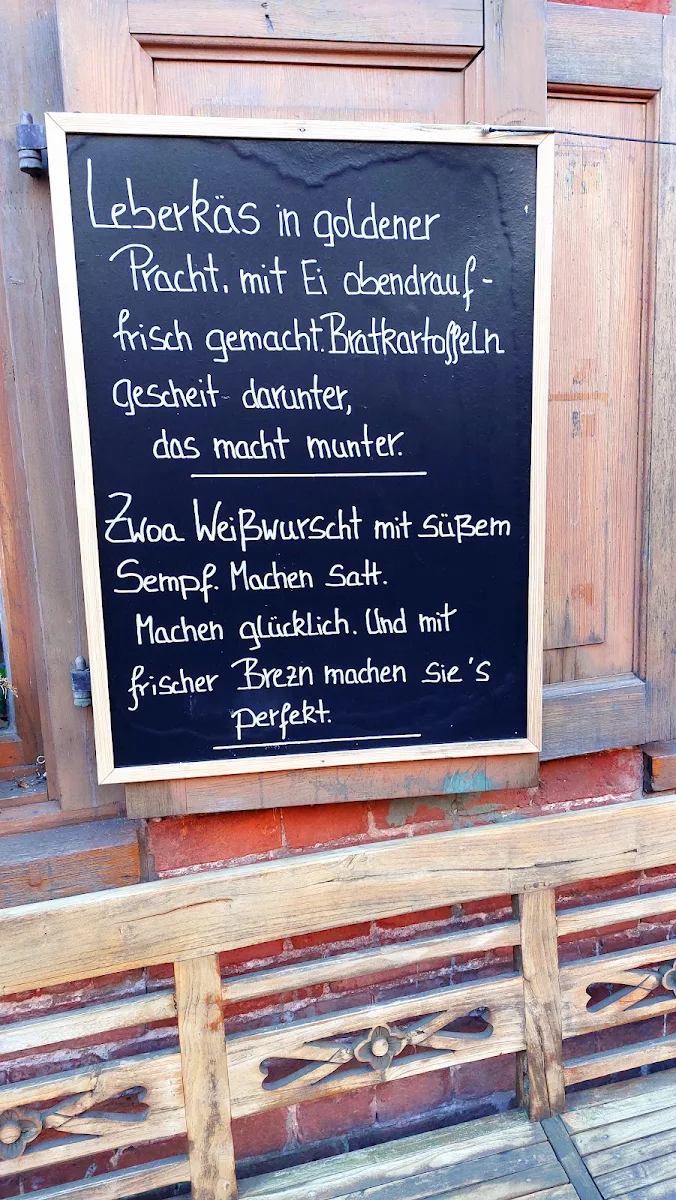 Leberkäs in goldener
Pracht. mit Ei obendrauf -
frisch gemacht. Bratkartoffeln
gescheit darunter,
das macht munter.
Zwoa Weißwurscht mit süßem
Sempf. Machen satt.
Machen glücklich. Und mit
frischer Brezn machen sie's
perfekt.